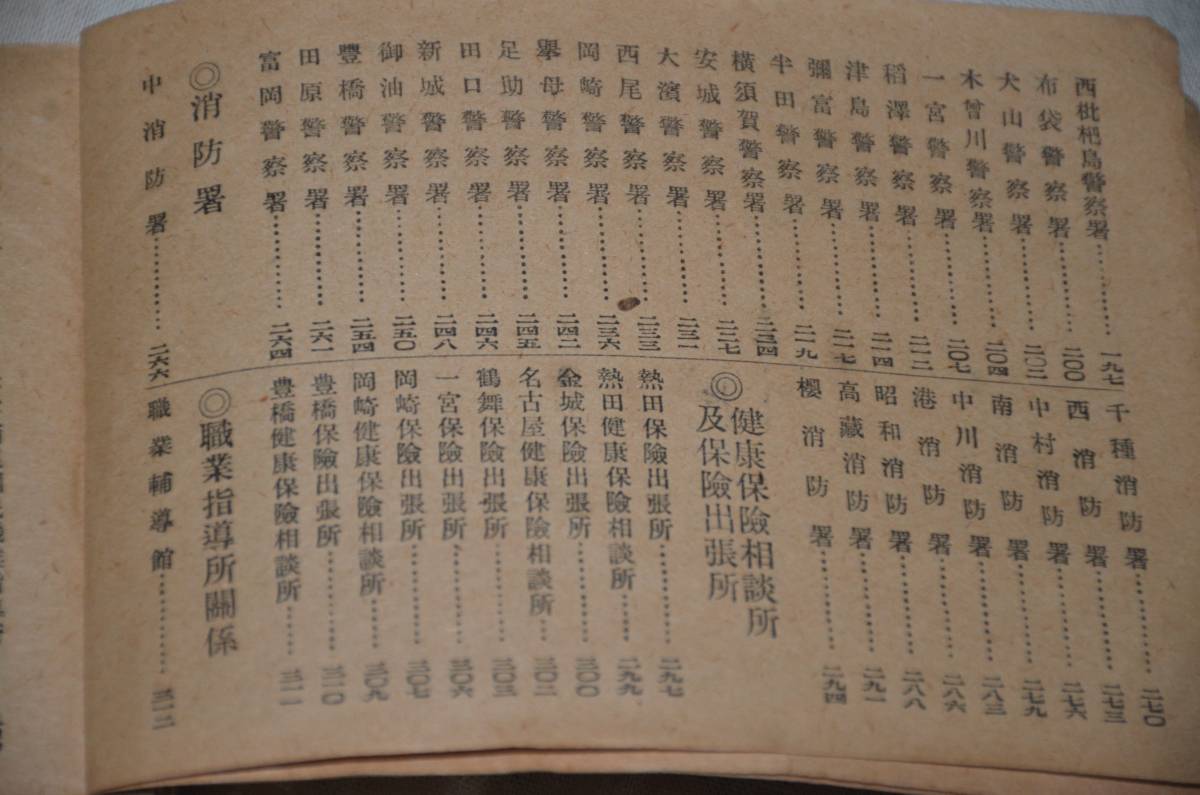 西枇杷島警察署………一九七
布袋警察署………二〇〇
犬山警察署………二〇二
木曾川警察署………二〇四
一宮警察署………二〇七
稻澤警察署………二一二
津島警察署………二一四
彌富警察署………二一七
半田警察署………二一九
橫須賀警察署………二二四
安城警察署………二二七
大濱警察署………二三一
西尾警察署………二三三
岡崎警察署………二三六
擧母警察署………二四二
足助警察署………二四五
田口警察署………二四六
新城警察署………二四八
御油警察署………二五〇
豐橋警察署………二五四
田原警察署………二六一
富岡警察署………二六四
◎消防署
中消防署………二六六
千種消防署………二七〇
西消防署………二七三
中村消防署………二七六
南消防署………二七九
中川消防署………二八三
港消防署………二八六
昭和消防署………二八八
高藏消防署………二九一
櫻消防署………二九四
◎健康保險相談所
及保險出張所
熱田保險出張所………二九七
熱田健康保險相談所……二九九
金城保險出張所………三〇〇
名古屋健康保險相談所…三〇二
鶴舞保險出張所………三〇三
一宮保險出張所………三〇六
岡崎保險出張所………三〇七
岡崎健康保險相談所……三〇九
豊橋保險出張所………三一〇
豊橋健康保險相談所……三一一
◎職業指導所關係
職業輔導館………三一二